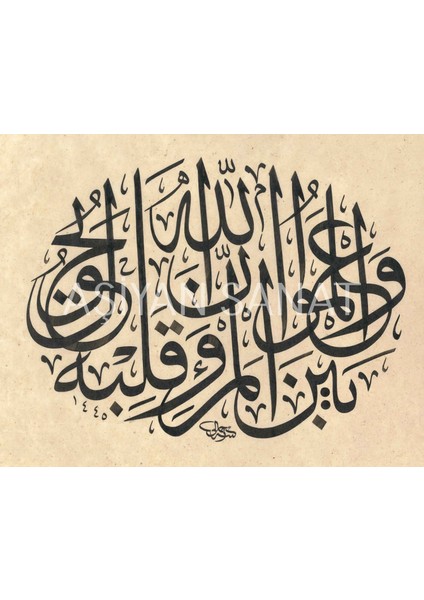 واعلموا ان الله يحول
بين المرء وقلبه
١٤٤٥
AŞİYAN SANAT